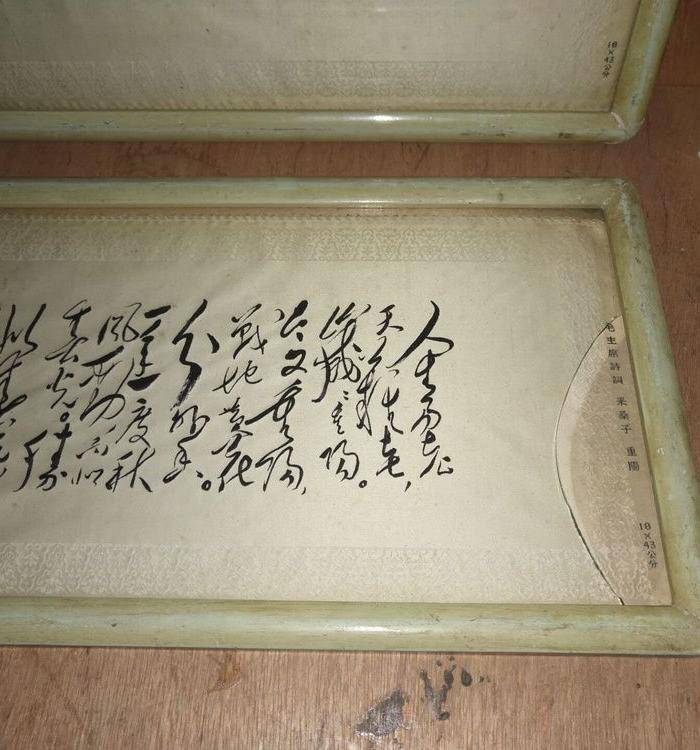 18×43公分
毛主席詩詞 采桑子 重陽
18×43公分
人生易老
天難老，
歲〻重陽。
今又重陽，
戰地黃花
分外香。
一年一度秋
風勁，不似
春光。勝
似春光